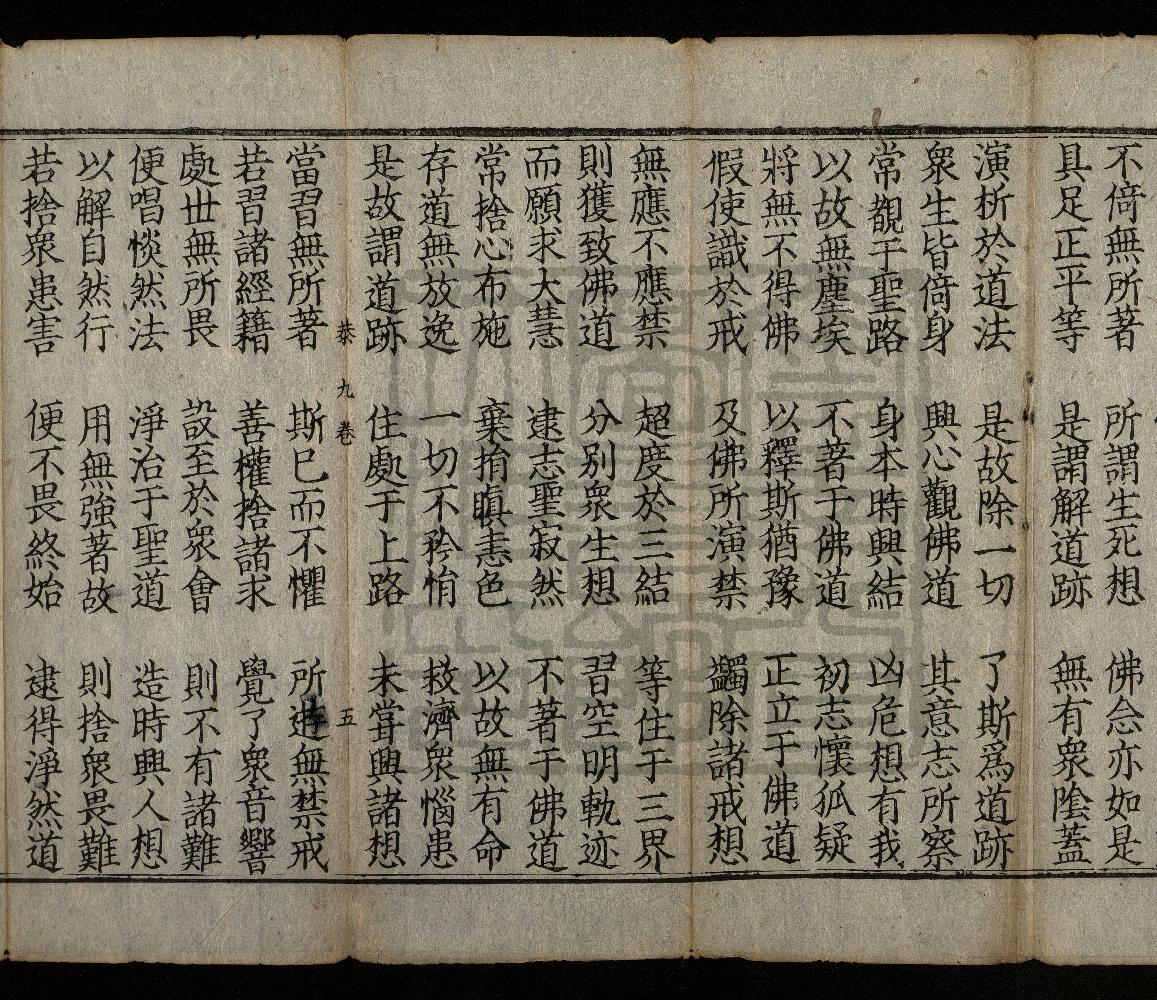 不倚無所著　所謂生死想　佛念亦如是
具足正平等　是謂解道跡　無有衆陰蓋
演析於道法　是故除一切　了斯爲道跡
衆生皆倚身　興心觀佛道　其意志所察
常觀于聖路　身本時興結　凶危想有我
以故無塵埃　不著于佛道　初志懷狐疑
將無不得佛　以釋斯猶豫　正立于佛道
假使識於戒　及佛所演禁　蠲除諸戒想
無應不應禁　超度於三結　等住于三界
則獲致佛道　分別衆生想　習空明軌迹
而願求大慧　逮志聖寂然　不著于佛道
常捨心布施　棄捐瞋恚色　以故無有命
存道無放逸　一切不矜恡　救濟衆惱患
是故謂道跡　住處于上路　未甞興諸想
九卷　五
當習無所著　斯已而不懼　所遊無禁戒
若習諸經籍　善權捨諸求　覺了衆音響
處丗無所畏　設至於衆會　則不有諸難
便唱惔然法　淨治于聖道　造時興人想
以解自然行　用無強著故　則捨衆畏難
若捨衆患害　便不畏終始　逮得淨然道